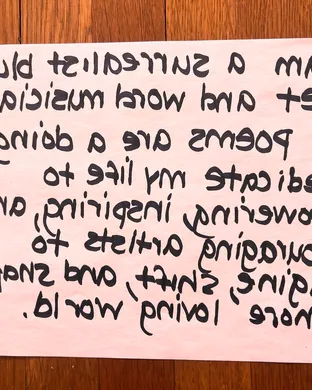 am a surrealist blu
et and word musicia
poems are a doing
edicate my life to
owering, inspiring, an
ouraging artists to
agine, shift, and shap
more loving world.